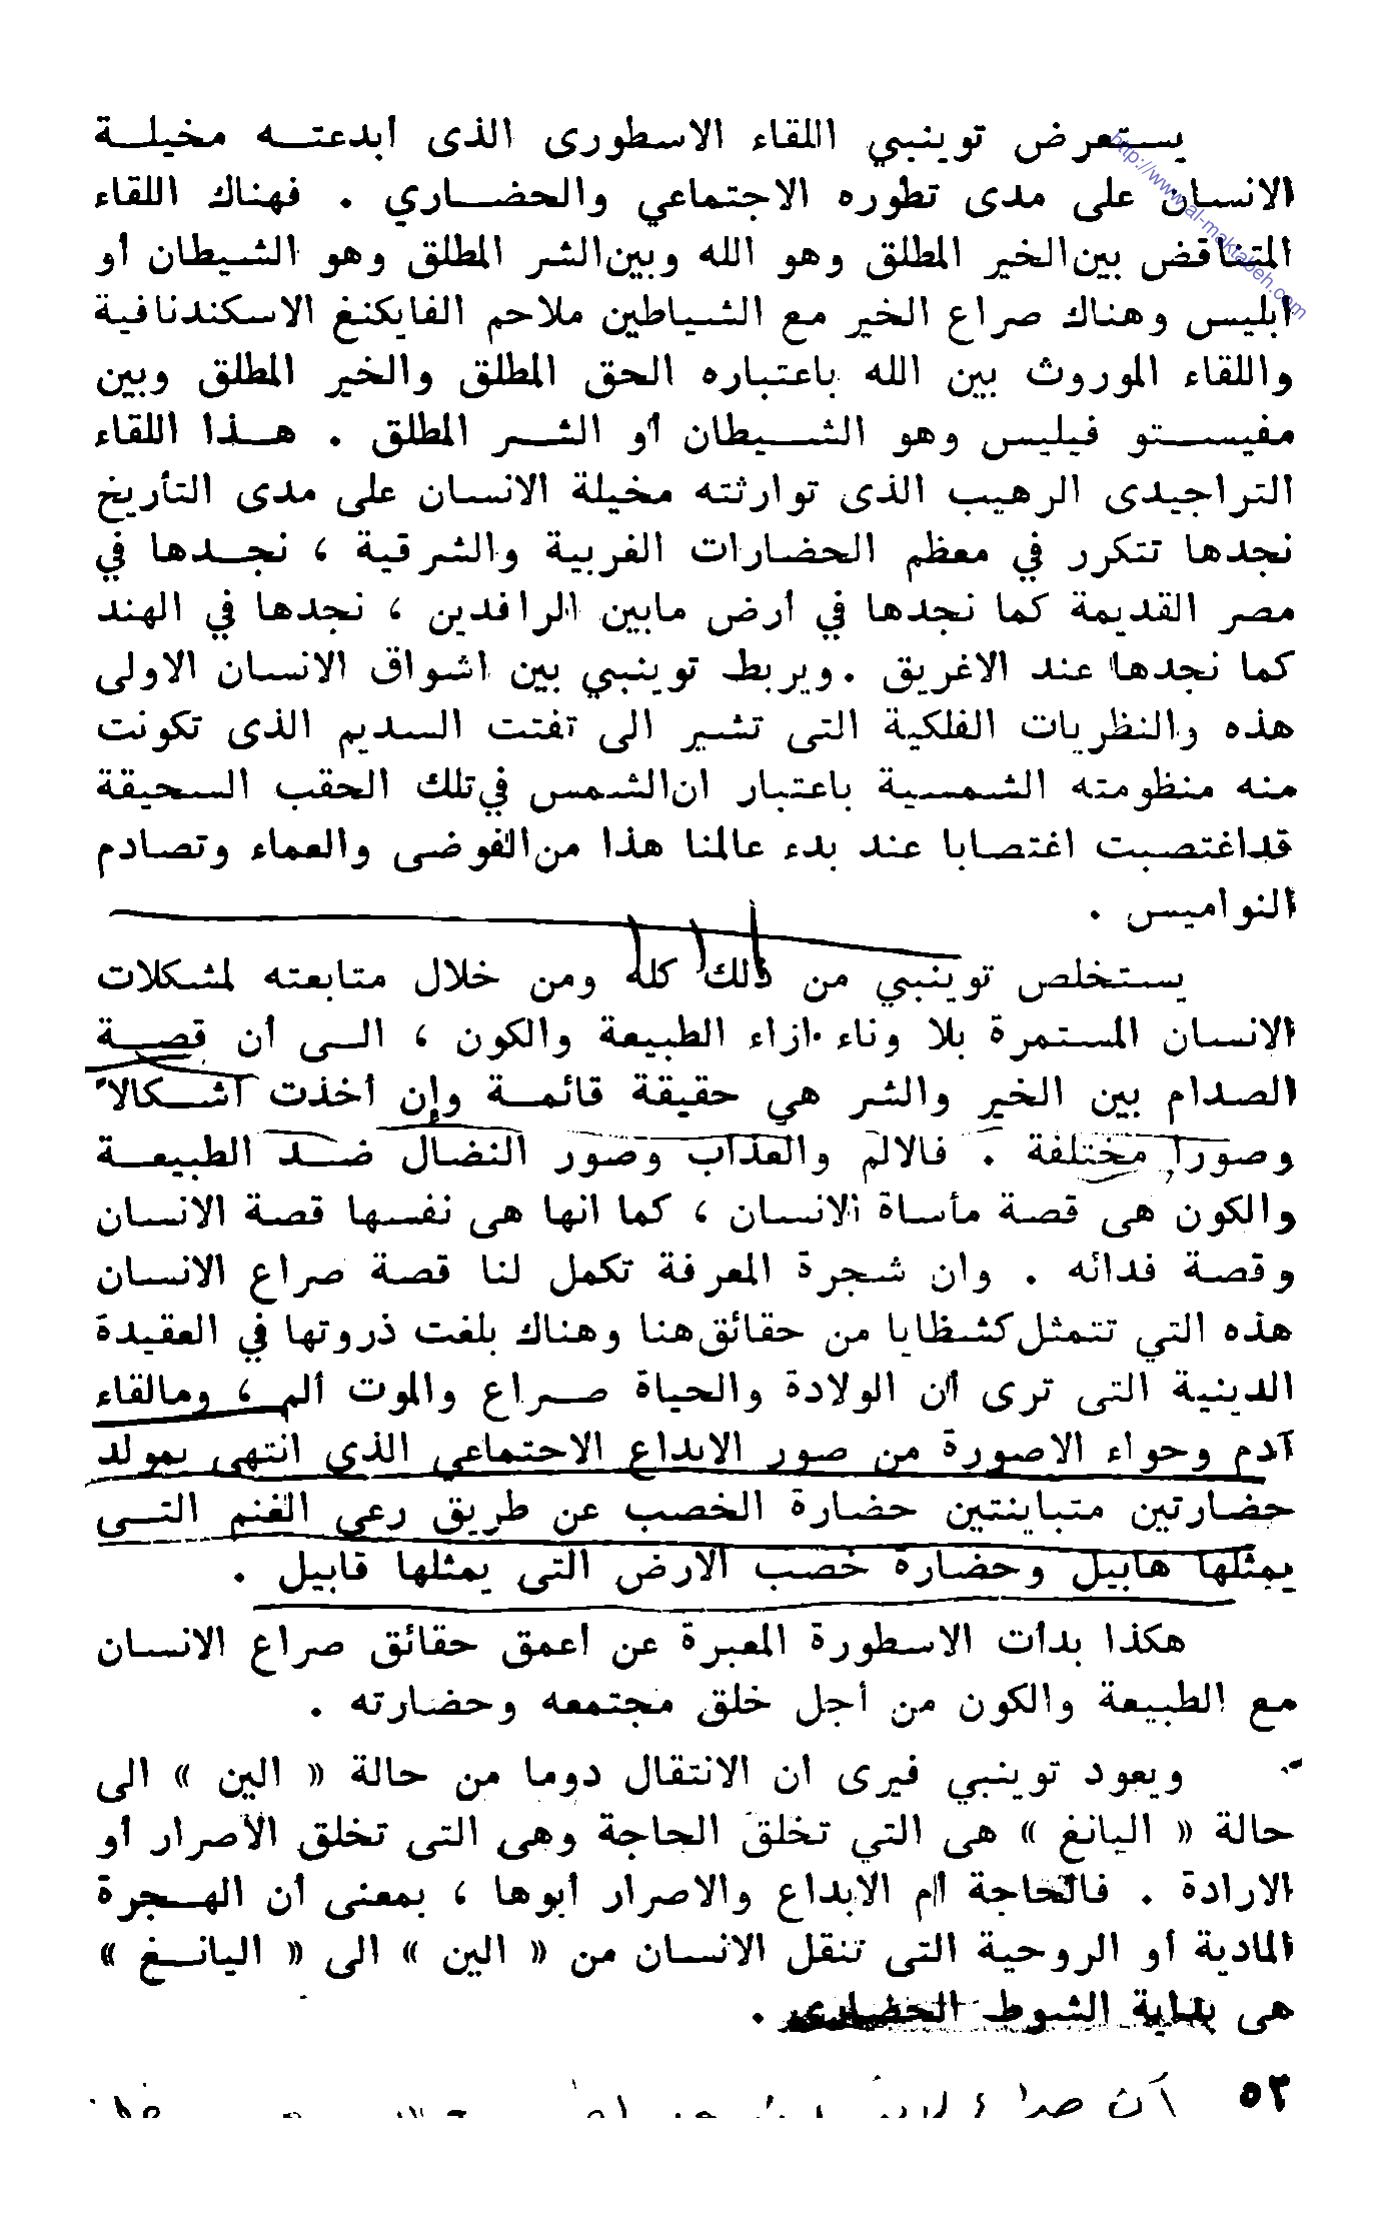 يستعرض توينبي اللقاء الاسطورى الذى أبدعته مخيلة
الانسان على مدى تطوره الاجتماعي والحضاري . فهناك اللقاء
المتناقض بين الخير المطلق وهو الله وبين الشر المطلق وهو الشيطان أو
ابليس وهناك صراع الخير مع الشياطين ملاحم الفايكنغ الاسكندنافية
واللقاء الموروث بين الله باعتباره الحق المطلق والخير المطلق وبين
مفيستو فيليس وهو الشيطان أو الشر المطلق . هذا اللقاء
التراجيدى الرهيب الذى توارثته مخيلة الانسان على مدى التأريخ
نجدها تتكرر في معظم الحضارات الغربية والشرقية ، نجدها في
مصر القديمة كما نجدها في أرض مابين الرافدين ، نجدها في الهند
كما نجدها عند الاغريق . ويربط توينبي بين اشواق الانسان الاولى
هذه والنظريات الفلكية التى تشير الى تفتت السديم الذى تكونت
منه منظومته الشمسية باعتبار ان الشمس في تلك الحقب السحيقة
قد اغتصبت اغتصابا عند بدء عالمنا هذا من الفوضى والعماء وتصادم
النواميس .
يستخلص توينبي من ذلك كله ومن خلال متابعته لمشكلات
الانسان المستمرة بلا وناء ازاء الطبيعة والكون ، الى أن قصة
الصدام بين الخير والشر هي حقيقة قائمة وإن أخذت أشكالاً
وصورا مختلفة . فالالم والعذاب وصور النضال ضد الطبيعة
والكون هى قصة مأساة الانسان ، كما انها هى نفسها قصة الانسان
وقصة فدائه . وان شجرة المعرفة تكمل لنا قصة صراع الانسان
هذه التي تتمثل كشظايا من حقائق هنا وهناك بلغت ذروتها في العقيدة
الدينية التى ترى أن الولادة والحياة صراع والموت ألم ، ومالقاء
آدم وحواء الاصورة من صور الابداع الاجتماعي الذي انتهى بمولد
حضارتين متباينتين حضارة الخصب عن طريق رعي الغنم التى
يمثلها هابيل وحضارة خصب الارض التى يمثلها قابيل .
هكذا بدأت الاسطورة المعبرة عن أعمق حقائق صراع الانسان
مع الطبيعة والكون من أجل خلق مجتمعه وحضارته .
ويعود توينبي فيرى ان الانتقال دوما من حالة « الين » الى
حالة « اليانغ » هى التي تخلق الحاجة وهى التى تخلق الأصرار أو
الارادة . فالحاجة أم الابداع والاصرار أبوها ، بمعنى أن الهجرة
المادية أو الروحية التى تنقل الانسان من « الين » الى « اليانغ »
هى بداية الشوط الحضارى .
٥٢
http://www.al-maktabeh.com